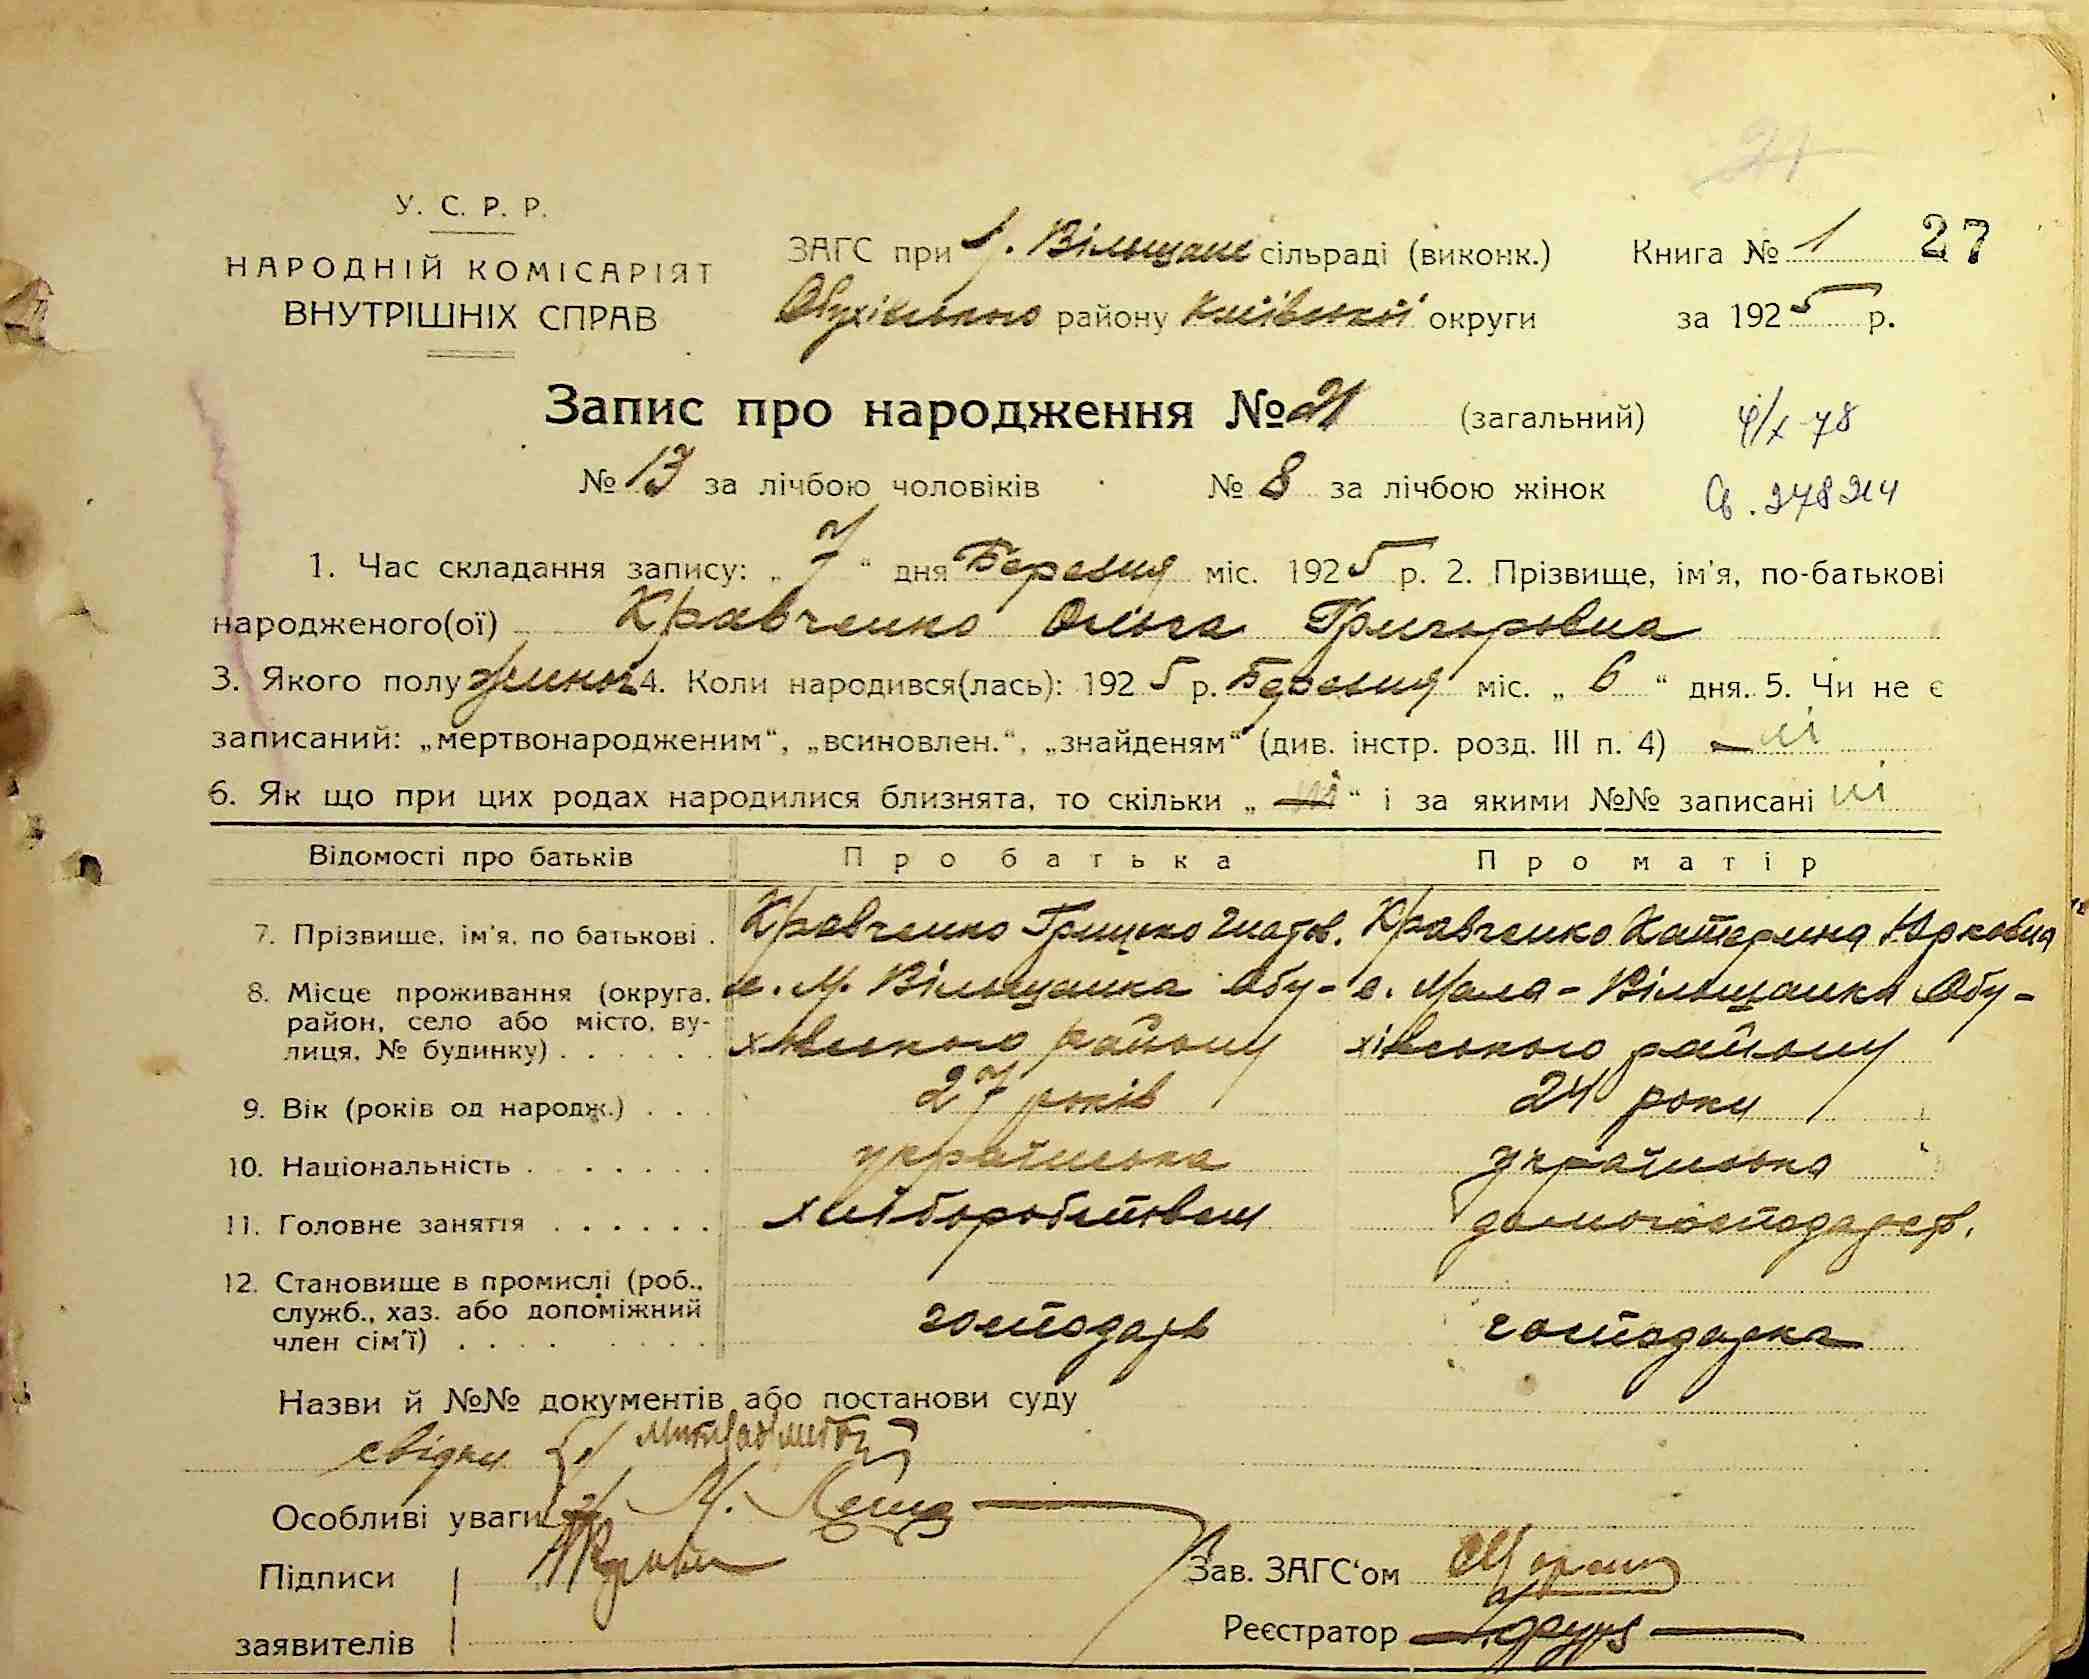 21
У. С. Р. Р.
НАРОДНІЙ КОМІСАРІЯТ
ВНУТРІШНІХ СПРАВ
ЗАГС при Вільщане сільраді (виконк.) Книга № 1 27
Обухівського району Київської округи за 1925 р.
Запис про народження № 21 (загальний) 4/X-78
№ 13 за лічбою чоловіків № 8 за лічбою жінок Св. 278214
1. Час складання запису: „ 7 “ дня Березня міс. 1925 р. 2. Прізвище, ім'я, по-батькові
народженого(ої) Кравченко Ольга Григоровна
3. Якого полу жіноч 4. Коли народився(лась): 1925 р. Березня міс. „ 6 “ дня. 5. Чи не є
записаний: „мертвонародженим“, „всиновлен.“, „знайденям“ (див. інстр. розд. III п. 4) — ні
6. Як що при цих родах народилися близнята, то скільки „ ні “ і за якими №№ записані ні
Відомості про батьків Про батька Про матір
7. Прізвище, ім'я, по батькові . Кравченко Грицько Гнатов. Кравченко Катерина Юрковна
8. Місце проживання (округа, с. М. Вільщанка Обу- с. Мала-Вільщанка Обу-
район, село або місто, ву-
лиця, № будинку) . . . . . . хівського району хівського району
9. Вік (років од народж.) . . . 27 років 24 роки
10. Національність . . . . . . . українська українська
11. Головне заняття . . . . . . хліборобством домогосподарств.
12. Становище в промислі (роб.,
служб., хаз. або допоміжний господарь господарка
член сім'ї) . . . . . . . .
Назви й №№ документів або постанови суду
свідки 1/
Особливі уваги 2/ М.
Підписи Зав. ЗАГС'ом
заявителів Реєстратор